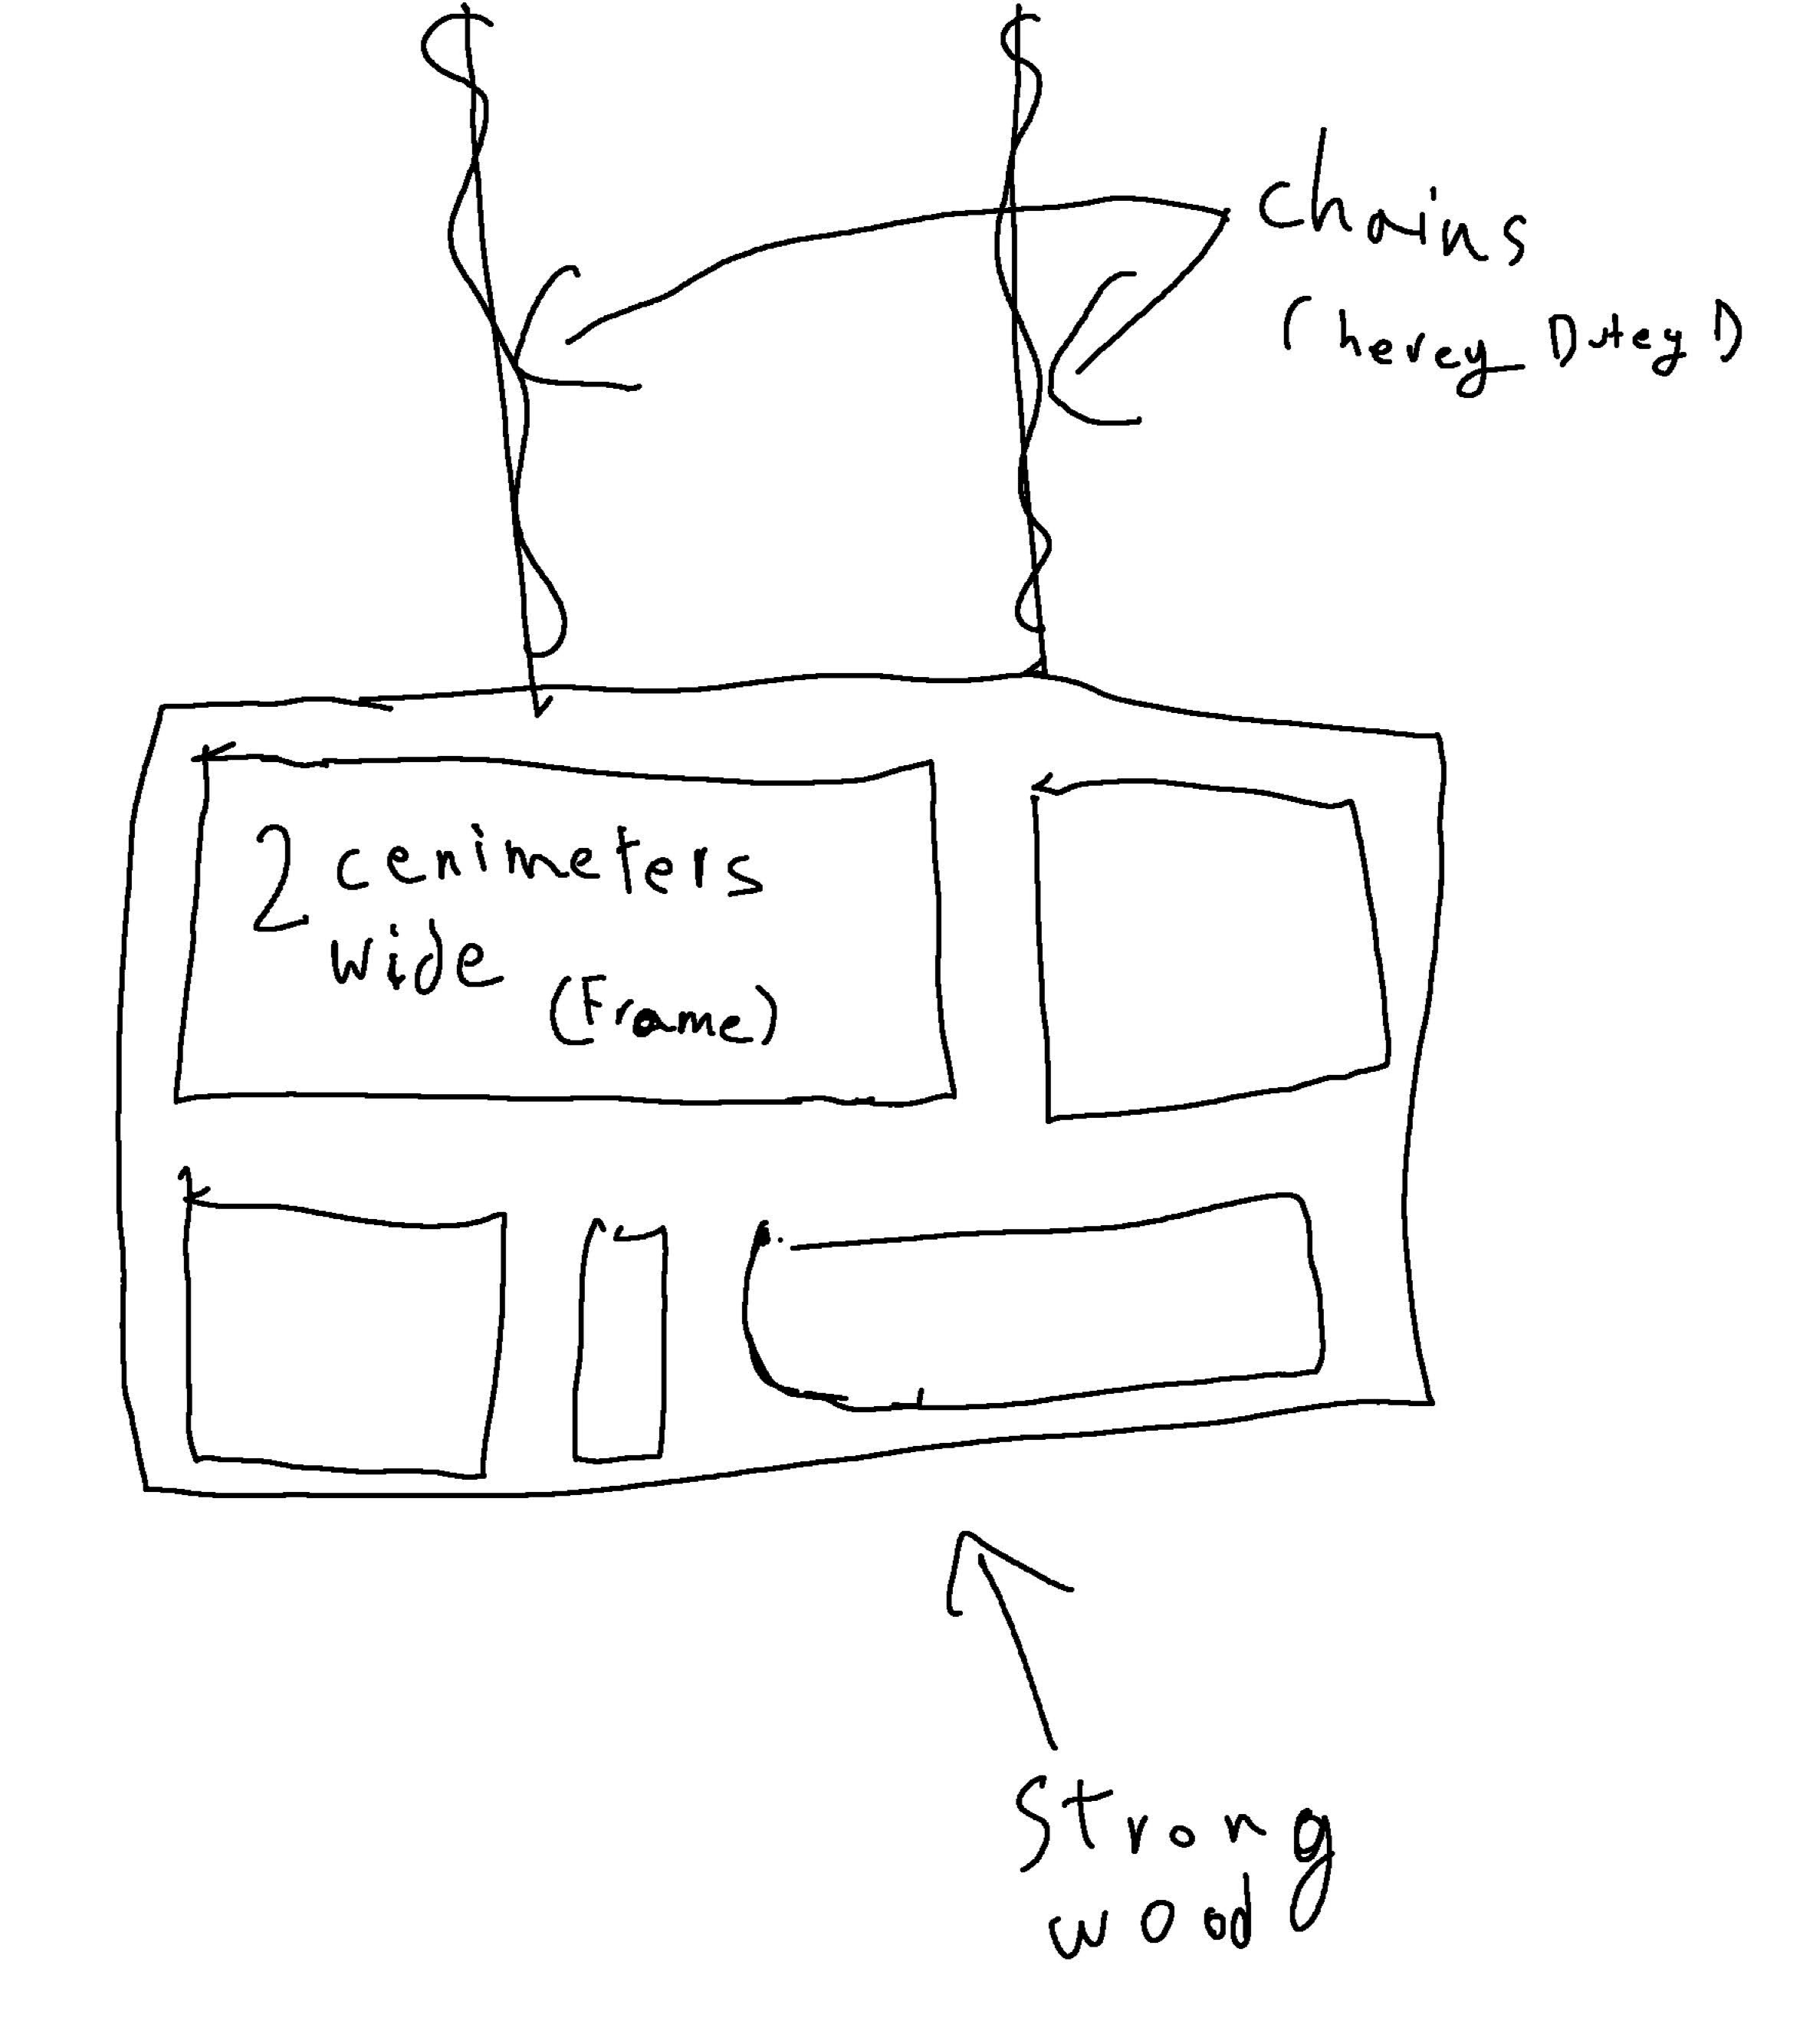 chains
(hevey Dutey)
2 cenimeters
wide
(Frame)
Strong
wood